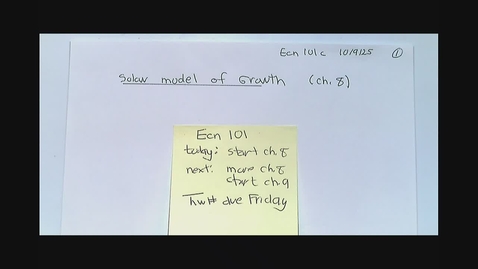 Ecn 101c 10/9/25 ①
Solow model of Growth (ch. 8)
Ecn 101
today: start ch. 8
next: more ch. 8
start ch. 9
hw# due Friday